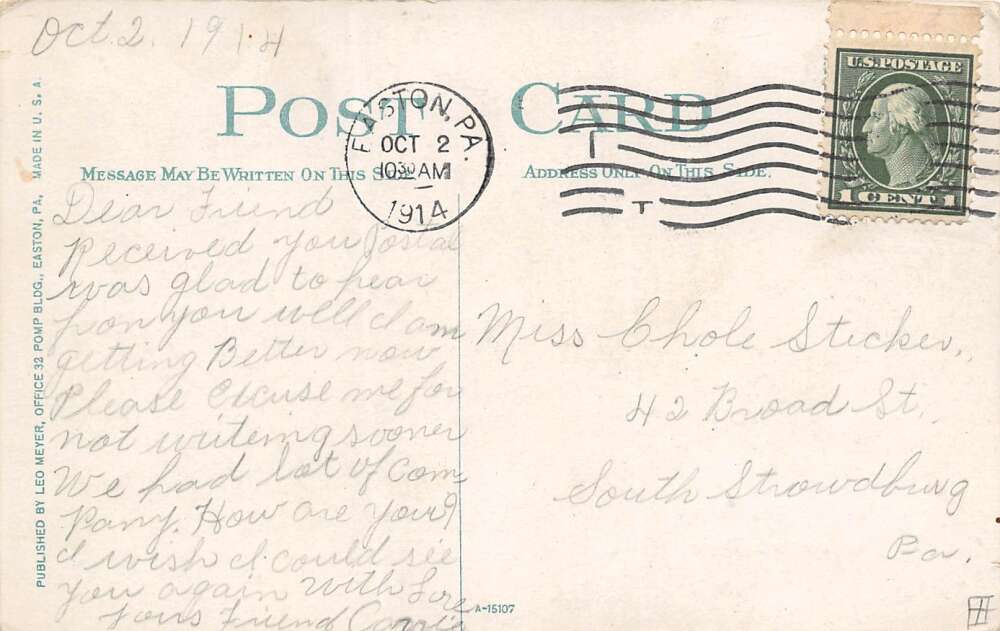 Oct. 2. 1914
POST CARD
MESSAGE MAY BE WRITTEN ON THIS
ADDRESS ONLY ON THIS SIDE.
EASTON, PA.
OCT 2
1030 AM
1914
T
T
U.S. POSTAGE
1 CENT 1
PUBLISHED BY LEO MEYER, OFFICE 32 POMP BLDG., EASTON, PA, MADE IN U.S.A.
Dear Friend
Received you Postal
was glad to hear
you well I am
getting Better now
Please Excuse me for
not writeing sooner
We had lot of Com
Pany. How are you?
I wish I could see
you again with Love
Yours Friend Carrie
Miss Chole Sticker,
42 Broad St.
South Strowdburg
Pa.
A-15107